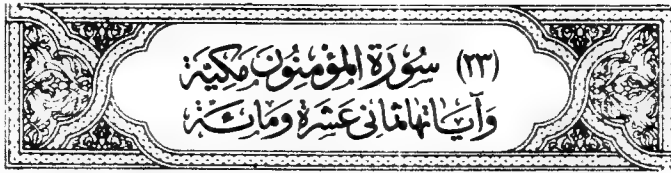 (٢٣) سُورَةُ المُؤْمِنُونَ مَكِيَّة
وَآيَاتُهَا ثَمَانِى عَشَرَةَ وَمَائَة